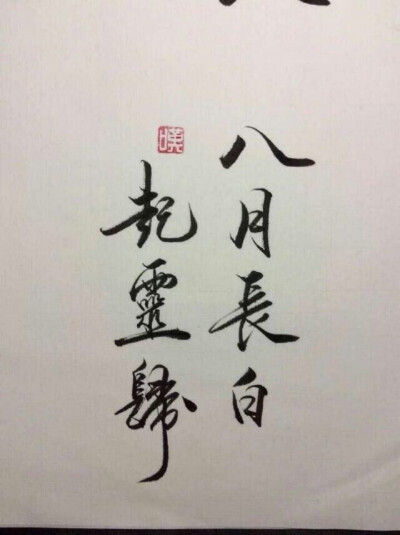 八月長白
起靈歸
嘆